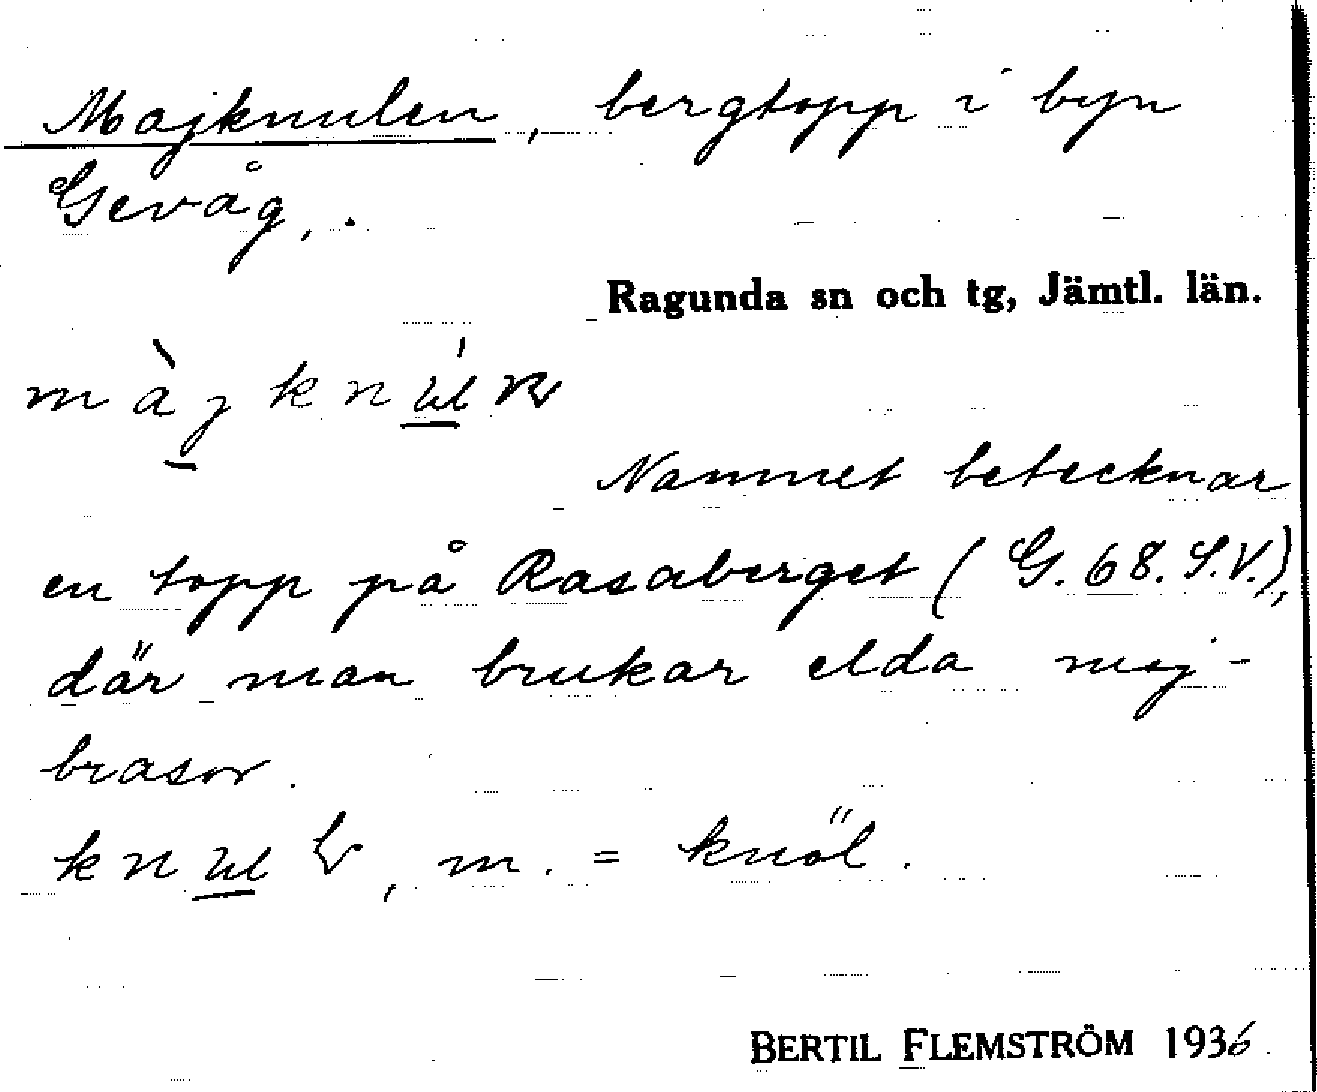 Majknulen, bergtopp i byn
Gevåg,.
Ragunda sn och tg, Jämtl. län.
Namnet betecknar
en topp på Rasaberget (G. 68. S.V.),
där man brukar elda maj-
brasor.
m. = knöl.
BERTIL FLEMSTRÖM 1936.